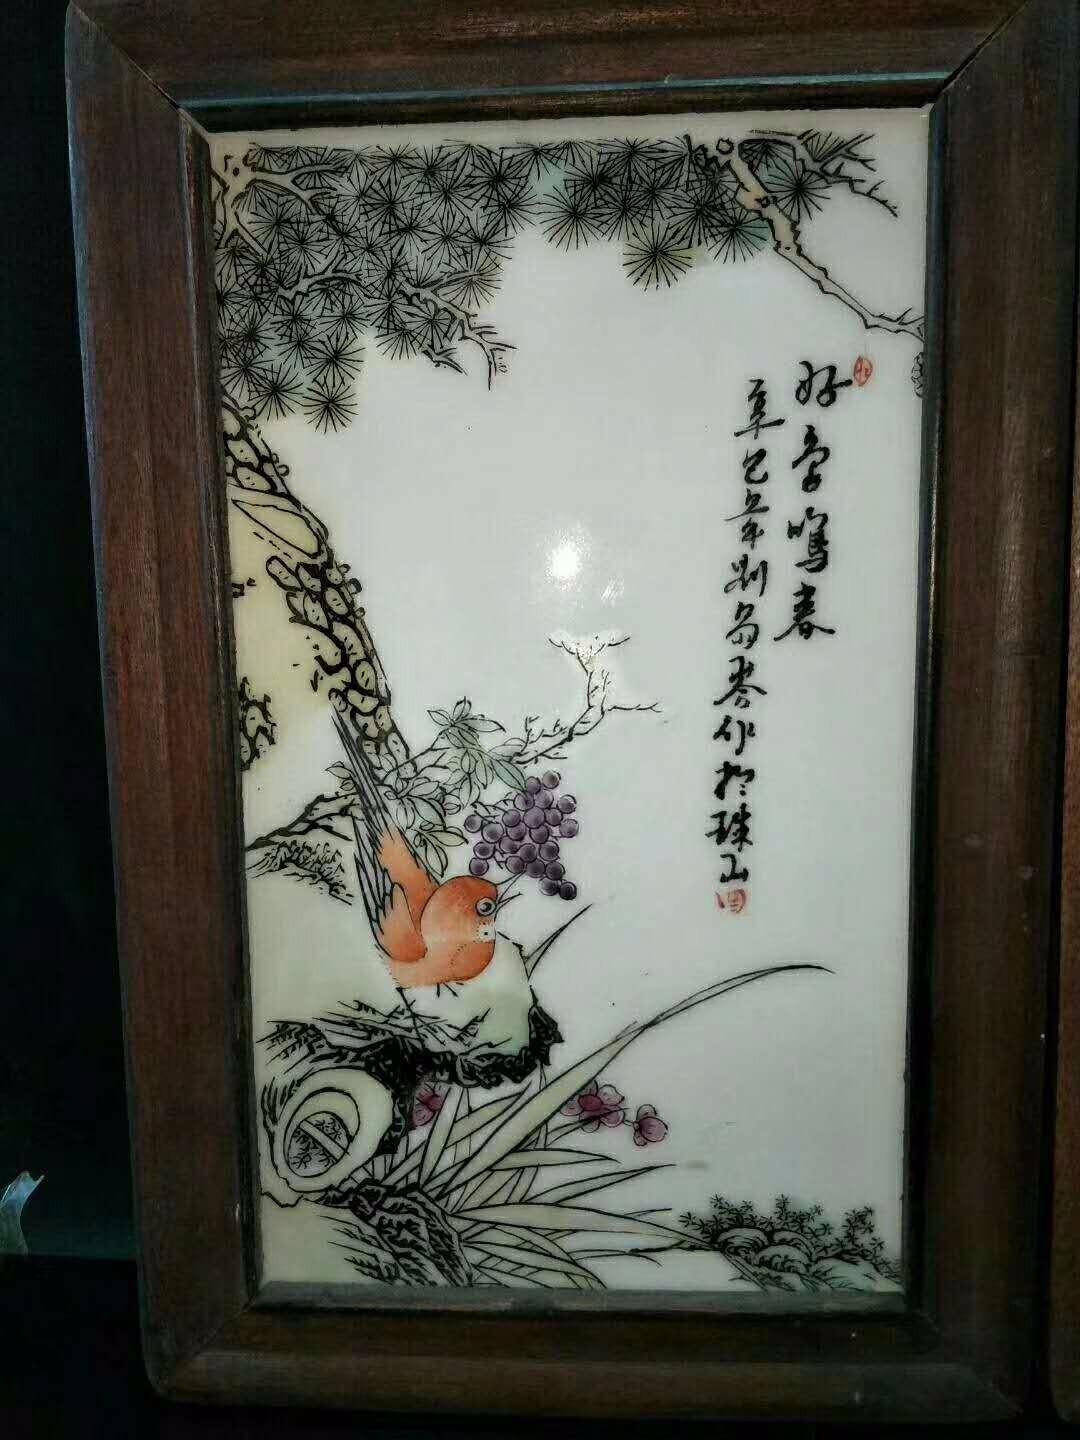 好音鸣春
辛巳年刘雨岑作於珠山